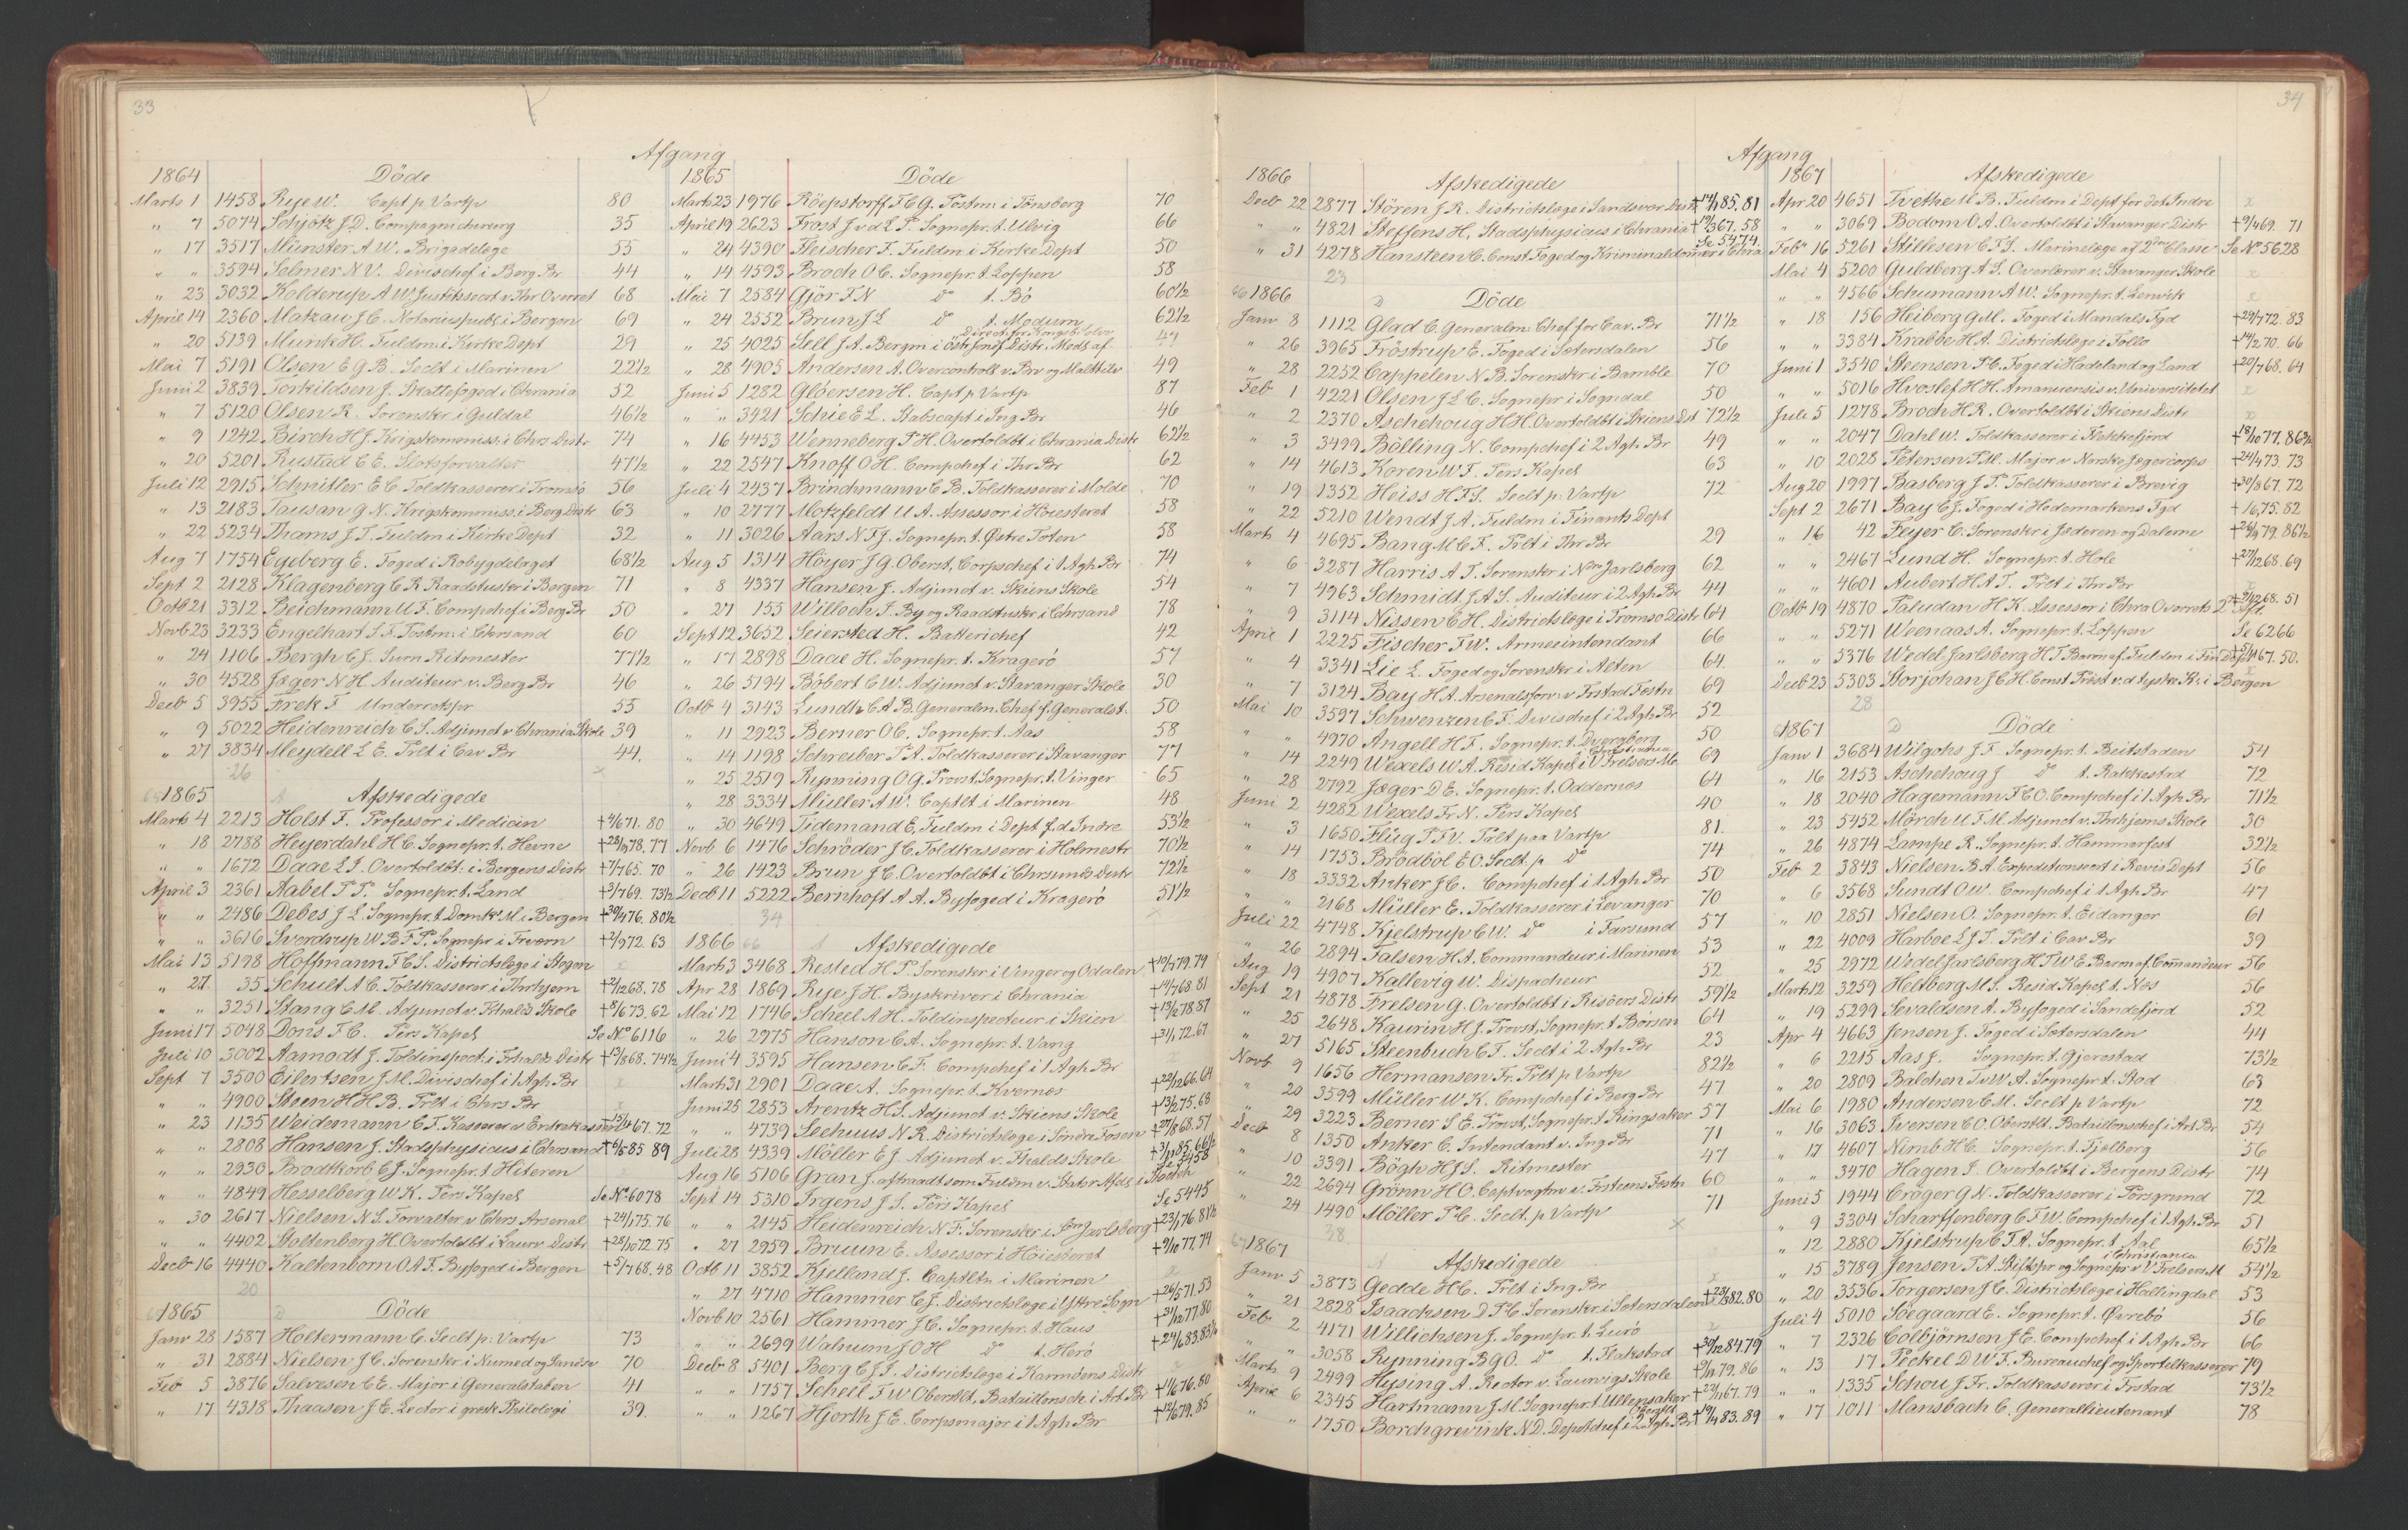 33
Afgang
1864 Döde
Marts 1 1458 Rye W. Capt p Vartp 80
" 7 5074 Schjötz J.D. Compagnichirurg 35
" 17 3517 Münster A W. Brigadelæge 55
" " 3594 Selmer N V. Divischef i Berg Br 44
" 23 3032 Kolderup A W. Justitssecrt v Thr Overret 68
April 14 2360 Matzau J C. Notarius publ. i Bergen 69
" 20 5139 Munk H. Fuldm. i Kirke Dept 29
Mai 7 5191 Olsen E G B. Seclt i Marinen 22½
Juni 2 3839 Torkildsen J. Skattefoged i Chrania 52
" 7 5120 Olsen R. Sorenskr i Guldal 46½
" 9 1242 Birch H J. Krigskommiss: i Chrs Distr 74
" 20 5201 Rustad C E. Slotsforvalter 47½
Juli 12 2915 Schnitler E C. Toldkasserer i Tromsö 56
" 13 2183 Tausan G N. Krigskommiss: i Berg Distr 63
" 22 5234 Thams J T. Fuldm i Kirke Dept 32
Aug 7 1754 Egeberg E. Foged i Robygdelaget 68½
Sept 2 2128 Klagenberg C R Raadstuskr i Bergen 71
Octb 21 3312 Beichmann U F. Compchef i Berg Br 50
Novb 23 3233 Engelhart S F. Postm. i Chrsand 60
" 24 1106 Bergh C J. Surn Ritmester 77½
" 30 4528 Jæger N H. Auditeur v. Berg Br 46
Decb 5 3955 Frek F Underrokpr 55
" 9 5022 Heidenreich C S. Adjunct v Chrania Skole 39
" 27 3834 Meydell L E. Prlt i Cav Br 44.
26
1865 Afskedigede
Marts 4 2213 Holst F. Professor i Medicin †4/6 71. 80
" 18 2788 Heyerdahl H C. Sognepr. t. Hevne 78. 77
" " 1672 Daae L J. Overtoldbt. i Bergens Distr †7/7 65. 70
April 3 2361 Aabel P P. Sognepr. t. Land †3/7 69. 73½
" " 2486 Debes J L. Sognepr. t Domk: M. i Bergen †30/4 76. 80½
" " 3616 Sverdrup W B F P. Sognepr i Tværn †2/9 72. 63
Mai 13 5198 Hoffmann F C S. Districtslæge i Stegen
" 27. 35 Schult A C. Toldkasserer i Thrhjem †2/12 68. 78
" " 3251 Stang C M. Adjunct v. Fhalds Skole †8/6 73. 62
Juni 17 5048 Dons F C. Pers Kapel Se No 6116
Juli 10 3002 Aamodt J. Toldinspect. i Frhalds Distr †13/8 68. 74½
Sept 7 3500 Eilertsen J M. Divischef i 1 Agh Br
" " 4900 Steen H H B. Prlt i Chrs Br
" 23 1135 Weidemann C F. Kasserer v Enkekassen †15/4 67. 72
" " 2808 Hansen J. Stadsphysicus i Chrsand †6/5 85 89
" " 2930 Brodtkorb C J. Sognepr. t Hiteren
" " 4849 Hesselberg W K. Pers Kapel Se No 6078
" 30 2617 Nielsen N S. Forvalter v Chrs Arsenal †24/1 75. 76
" " 4402 Stoltenberg H. Overtoldbt i Laurv Distr †28/10 72. 75
Decb 16 4440 Kaltenborn O A F. Byfoged i Bergen †5/7 68. 48
20
1865 Döde
Janr 28 1587 Holtermann C. Seclt p. Vartp 73
" 31 2884 Nielsen J C. Sorenskr i Numed og Sandsv 70
Feb 5 3876 Salvesen C E. Major i Generalstaben 41
" 17 4318 Thaasen J E. Lector i græsk Philologi 39.
1865 Döde
Marts 23 1976 Röepstorff F C G. Postm. i Tönsberg 70
April 19 2623 Frost J v d L P. Sognepr. t. Ulvig 66
" 24 4390 Fleischer F. Fuldm i Kirke Dept 50
" 14 4593 Broch O C. Sognepr. t. Loppen 58
Mai 7 2584 Gjör F N do t. Bö 60½
" 24 2552 Brun J L do t. Modum 62½
" 25 4025 Sell J A. Bergm i Östr Jonef. Distr. Meds af Direct. for Kongsb. Sölvv 47
" 28 4905 Andersen A. Overcontroll v. Brv og Malttilv 49
Juni 5 1282 Glöersen H. Capt p Vartp 87
" " 3421 Schie E L. Stabscapt i Ing Br 46
" 16 4453 Wenneberg P H. Overtoldbt i Chrania Distr 62½
" 22 2547 Knoff O H. Compchef i Thr Br 62
Juli 4 2437 Brinchmann C B. Toldkasserer i Molde 70
" 10 2777 Motzfeldt U A. Assessor i Höiesteret 58
" 11 3026 Aars N F J. Sognepr. t. Østre Toten 58
Aug 5 1314 Höyer J G. Oberst, Corpschef i 1 Agh Br 74
" 8 4337 Hansen J. Adjunct v. Skiens Skole 54
" 27 155 Willoch I. By og Raadstuskr i Chrsand 78
Sept 12 3652 Seiersted H. Batterichef 42
" 17 2898 Daae H. Sognepr. t. Kragerö 57
" 26 5194 Böbert C W. Adjunct v. Stavanger Skole 30
Octb 4 3143 Lundh C A B. Generalm. Chef f. Generalst. 50
" 11 2923 Berner O C. Sognepr. t. Aas 58
" 14 1198 Schreiber P A. Toldkasserer i Stavanger 77
" 25 2519 Rynning O G. Provst, Sognepr. t. Vinger 65
" 28 3334 Müller A W. Captlt i Marinen 48
" 30 4649 Tidemand E. Fuldm i Dept f. d Indre 53½
Novb 6 1476 Schröder J C. Toldkasserer i Holmestr 70½
" 26 1423 Brun J C. Overtoldbt i Chrsunds Distr 72½
Decb 11 5222 Bernhoft A A. Byfoged i Kragerö 51½
34
1866 66 Afskedigede
Marts 3 3468 Rested H P. Sorenskr i Vinger og Odalen †10/7 79. 79
Apr 28 1869 Rye J H. Byskriver i Chrania †14/7 68 81
Mai 12 1746 Scheel A H. Toldinspecteur i Skien †13/2 78. 87
" 26 2975 Hanson C A. Sognepr. t. Vang 72. 67
Juni 4 3595 Hansen C F. Compchef i 1 Agh Br
Marts 31 2901 Daae A. Sognepr. t. Kvernæs †22/12 66. 64
Juni 25 2853 Arentz H S. Adjunct v. Skiens Skole †13/2 75. 68
" " 4739 Seehuus N R. Districtslæge i Söndre Fosen †27/6 68. 57
Juli 28 4339 Möller E J. Adjunct v. Fhalds Skole 85. 66½
Aug 16 5106 Gran J. aftraadt som Fuldm v. Stats Afds. i Stockh Se 5458
Sept 14 5310 Irgens J S. Pers Kapel Se 5445
" " 2145 Heidenreich N F. Sorenskr i Grev Jarlsberg †23/1 76. 81½
" 27 2959 Bruun E. Assessor i Höiesteret †9/10 77. 74
Octb 11 3852 Kjelland J. Captltn i Marinen
" 27 4710 Hammer C J. Districtslæge i Ytre Sogn †26/5 71. 53
Novb 10 2561 Hammer J C. Sognepr. t. Haus †31/12 77. 80
" " 2699 Walnum J O H do t. Herö †24/6 83. 83½
Decb 8 5401 Berg C J J. Districtslæge i Karmöens Distr
" " 1757 Scheel F W Oberstlt, Bataillonsch. i Art Br †11/6 76. 80
" " 1267 Hjorth J E. Corpsmajor i 1 Agh Br †12/6 79. 85
34
Afgang
1866 Afskedigede
Decb 22 2877 Stören J R. Districtslæge i Sandsvær Distr †14/1 85. 81
" " 4821 Steffens H. Stadsphysicus i Chrania †19/3 67. 58
" 31 4278 Hansteen C. Const Foged og Kriminaldommer i Chra Se 5474.
23
1866 Döde
Janr 8 1112 Glad C. Generalm: Chef for Cav. Br 71½
" 26 3965 Fröstrup E. Foged i Sætersdalen 56
" 28 2252 Cappelen N B. Sorenskr i Bamble 70
Feb 1 4221 Olsen J L C. Sognepr i Sogndal 50
" 2 2370 Aschehoug H H. Overtoldbt i Skiens Dist 72½
" 3 3499 Bölling N. Compchef i 2 Agh. Br 49
" 14 4613 Koren W F. Pers Kapel 63
" 19 1352 Heiss H F S. Seclt p. Vartp 72
" 22 5210 Wendt J A. Fuldm i Finants Dept
Marts 4 4695 Bang M C F. Prlt i Thr Br 29
" 6 3287 Harris A T. Sorenskr i Nre Jarlsberg 62
" 7 4963 Schmidt J A S. Auditeur i 2 Agh Br 44
" 9 3114 Nissen C H. Districtslæge i Tromsö Distr 64
April 1 2225 Fischer F W. Armeeintendant 66
" 4 3341 Lie L. Foged og Sorenskr i Alten 64.
" 7 3124 Bay H A. Arsenalsforv. v Frstad Fæstn 69
Mai 10 3597 Schwenzen C F. Divischef i 2 Agh Br 52
" " 4970 Angell H F. Sognepr. t. Dvergberg 50
" 14 2249 Wexels W A. Resid Kapel i V Frelsers M Christiania 69
" 28 2792 Jæger D E. Sognepr. t. Oddernes 64
Juni 2 4282 Wexels Fr N. Pers Kapel 40
" 3 1650 Flüg P F V. Prlt paa Vartp 81.
" 14 1753 Brodböl E O. Seclt. p do 74
" 18 3332 Anker J C. Compchef i 1 Agh Br 50
" " 2168 Müller E. Toldkasserer i Levanger 70
Juli 22 4748 Kjelstrup C W. do i Farsund 57
" 26 2894 Falsen H A. Commandeur i Marinen 53
Aug 19 4907 Kallevig W. Dispacheur 52
Sept 21 4878 Frelsen G. Overtoldbt i Risöers Distr 59½
" 25 2648 Kaurin H J. Provst, Sognepr. t Börsen 64
" 27 5165 Steenbuch C F. Seclt i 2 Agh Br 23
Novb 9 1656 Hermansen Fr. Prlt p Vartp 82½
" 20 3599 Müller W K. Compchef i Berg Br 47
" 29 3223 Berner S E. Provst, Sognepr. t Ringsaker 57
Decb 8 1350 Anker C. Intendant v. Ing Br 71
" 10 3391 Bögh H J S. Ritmester 47
" 22 2694 Grönn H O. Captvagtm v. Frsteens Fæstn 60
" 24 1490 Möller P C. Seclt. p Vartp 71
38.
1867 Afskedigede
Janr 5 3873 Gedde H C. Prlt i Ing Br
" 21 2828 Isaachsen D P C. Sorenskr. i Sætersdalen 82. 80
Feb 2 4171 Willichsen J. Sognepr. t. Lurö
" " 3058 Rynning B G O. do t. Flakstad †30/12 84 79
Marts 9 2499 Hysing A. Rector v. Laurvigs Skole 79. 86
April 6 2345 Hartmann J M. Sognepr. t. Ullensaker 67. 79
" " 1750 Borchgrevink N D. Depotchef i 2 Agh Br Oberstlt 83. 89
1867 Afskedigede
Apr 20 4651 Tvethe M B. Fuldm i Dept for det Indre
" " 3069 Bodom O A. Overtoldbt i Stavanger Distr †9/4 69. 71
Feb 16 5261 Stillesen C F S. Marinelæge af 2den Classe Se No 5628
Mai 4 5200 Guldberg A S. Overlærer v. Stavanger Skole
" " 4566 Schumann A W. Sognepr. t. Lenvik
" 18 156 Heiberg G M. Foged i Mandals Fgd †29/7 72. 83
" " 3384 Krabbe H A. Districtslæge i Follo †14/2 70. 66
Juni 1 3540 Steensen P C. Foged i Hadeland og Land †20/7 68. 64
" " 5016 Hvoslef H H. Amanuensis v. Universitetet
Juli 5 1278 Broch H R. Overtoldbt i Skiens Distr
" " 2047 Dahl W. Toldkasserer i Flekkefjord †18/10 77. 86½
" 10 2028 Petersen P M. Major v Norske Jægercorps †24/4 73. 73
Aug 20 1997 Basberg J P. Toldkasserer i Brevig †30/8 67. 72
Sept 2 2671 Bay C J. Foged i Hedemarkens Fgd 75. 82
" 16 42 Feyer C. Sorenskr i Jæderen og Dalerne 79. 86½
" " 2467 Lund H. Sognepr. t. Hole †27/12 68. 69
" " 4601 Aubert H A T. Prlt i Thr Br
Octb 19 4870 Paludan H K. Assessor i Chra Overrets 2 Afd. 68. 51
" " 5271 Weenaas A. Sognepr. t. Loppen Se 6266
" " 5376 Wedel Jarlsberg H F Baron af. Fuldm i Fin Dept 67. 50.
Decb 23 5303 Storjohan J C H. Const Præst v. d tyske K. i Bergen
28
1867 Döde
Janr 1 3684 Wilgohs J F. Sognepr. t. Beitstaden 54
" 16 2153 Aschehoug J do t. Rakkestad 72
" 18 2040 Hagemann F C O. Compchef i 1 Agh Br 71½
" 23 5452 Mörch U F M. Adjunct v. Thrhjems Skole 30
" 26 4874 Lampe R. Sognepr. t. Hammerfest 32½
Feb 2 3843 Nielsen B A. Expeditionssecrt i Revis Dept 56
" 6 3568 Sundt O W. Compchef i 1 Agh Br 47
" 10 2851 Nielsen O. Sognepr. t. Eidanger 61
" 22 4009 Harboe L J T. Prlt i Cav Br 39
" 25 2972 Wedel Jarlsberg H T W E. Baron af. Commandeur 56
Marts 12 3259 Heltberg M S. Resid Kapel t. Næs 56
" 19 5299 Sevaldsen A. Byfoged i Sandefjord 52
Apr 4 4663 Jensen J. Foged i Sætersdalen 44
" 6 2215 Aas J. Sognepr. t. Gjerestad 73½
" 20 2809 Balchen T v W A. Sognepr. t. Stod 63
Mai 6 1980 Andersen C M. Seclt p Vartp 72
" 16 3063 Iversen C O. Oberstlt. Bataillonschef i Art Br 54
" 17 4607 Nimb H C. Sognepr. t. Fjelberg 56
" " 3470 Hagen I. Overtoldbt i Bergens Distr 74
Juni 5 1944 Cröger G N. Toldkasserer i Porsgrund 72
" 9 3304 Scharffenberg C F W. Compchef i 1 Agh Br 51
" 12 2880 Kjelstrup C T A. Sognepr. t. Aal 65½
" 15 3789 Jensen P A. Stiftspr og Sognepr v V Frelsers M i Christiania 54½
" 20 3536 Torgersen J C. Districtslæge i Hallingdal 53
Juli 4 5010 Söegaard E. Sognepr. t. Øvrebö 56
" 7 2326 Colbjörnsen J E. Compchef i 1 Agh Br 66
" 13 17 Peckel D W F. Bureauchef og Sportelkasserer 79
" " 1335 Schou J Fr. Toldkasserer i Frstad 73½
" 17 1011 Mansbach C. Generallieutenant 78